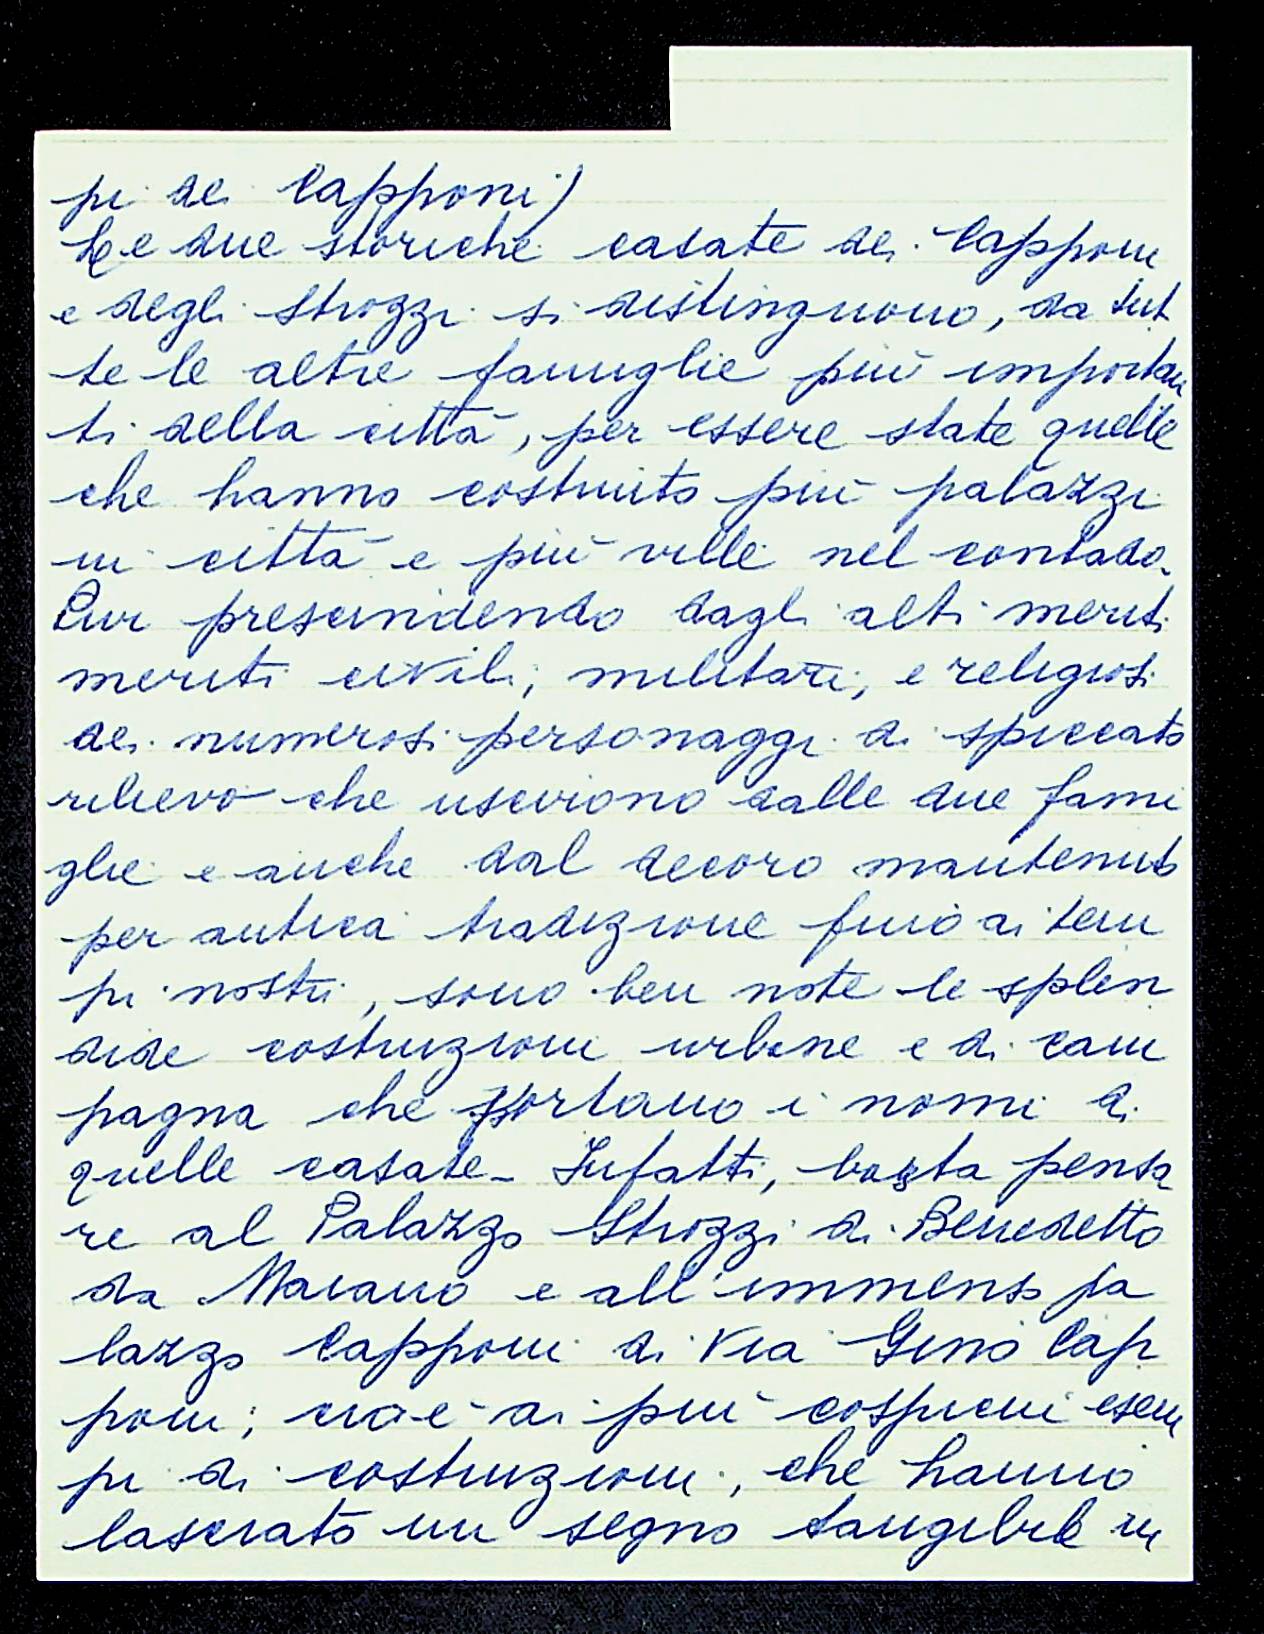 pi dei Capponi)
Le due storiche casate dei Capponi
e degli Strozzi si distinguono, da tut
te le altre famiglie più importan
ti della città, per essere state quelle
che hanno costruito più palazzi
in città e più ville nel contado.
Pur prescindendo dagli alti meriti
meriti civili, militari, e religiosi
dei numerosi personaggi di spiccato
rilievo che uscirono dalle due fami
glie e anche dal decoro mantenuto
per antica tradizione fino ai tem
pi nostri, sono ben note le splen
dide costruzioni urbane e di cam
pagna che portano i nomi di
quelle casate - Infatti, basta pensa
re al Palazzo Strozzi di Benedetto
da Maiano e all'immenso pa
lazzo Capponi di Via Gino Cap
poni; cioè ai più cospicui esem
pi di costruzioni, che hanno
lasciato un segno tangibile in